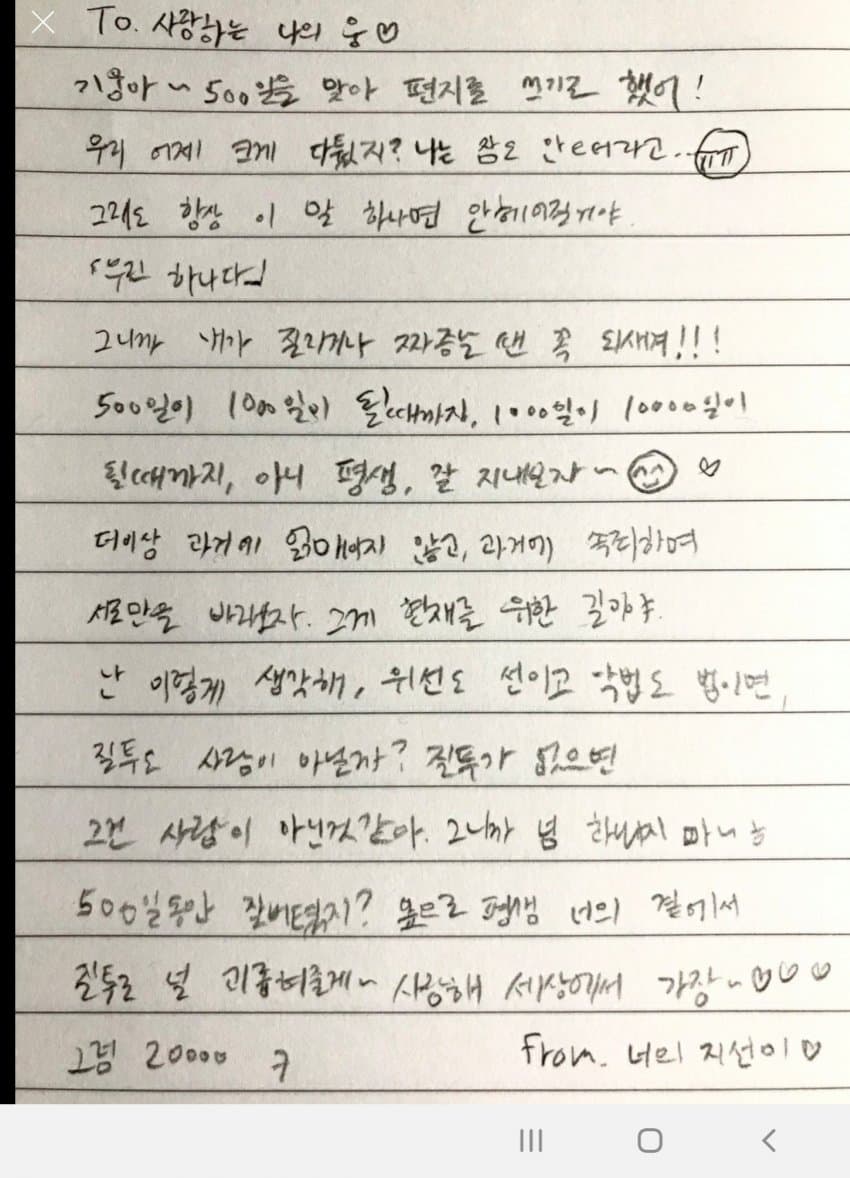 To. 사랑하는 나의 웅♡
기웅아~ 500일을 맞아 편지를 쓰기로 했어!
우리 어제 크게 다퉜지? 나는 잠도 안 오더라고..ㅠㅠ
그래도 항상 이 말 하나면 안헤어질거야.
「우린 하나다」
그니까 내가 질리거나 짜증날 땐 꼭 되새겨!!!
500일이 1000일이 될때까지, 1000일이 10000일이
될때까지, 아니 평생, 잘 지내보자~ ^^ ♡
더이상 과거에 얽매이지 않고, 과거에 속죄하며
서로만을 바라보자. 그게 현재를 위한 길이야.
난 이렇게 생각해, 위선도 선이고 악법도 법이면,
질투도 사랑이 아닐까? 질투가 없으면
그건 사랑이 아닌것같아. 그니까 넘 하지 마~ㅎ
500일동안 잘버텼지? 앞으로 평생 너의 곁에서
질투로 널 괴롭혀줄게~ 사랑해 세상에서 가장~♡♡♡
그럼 20000 ㅋ From. 너의 지선이♡